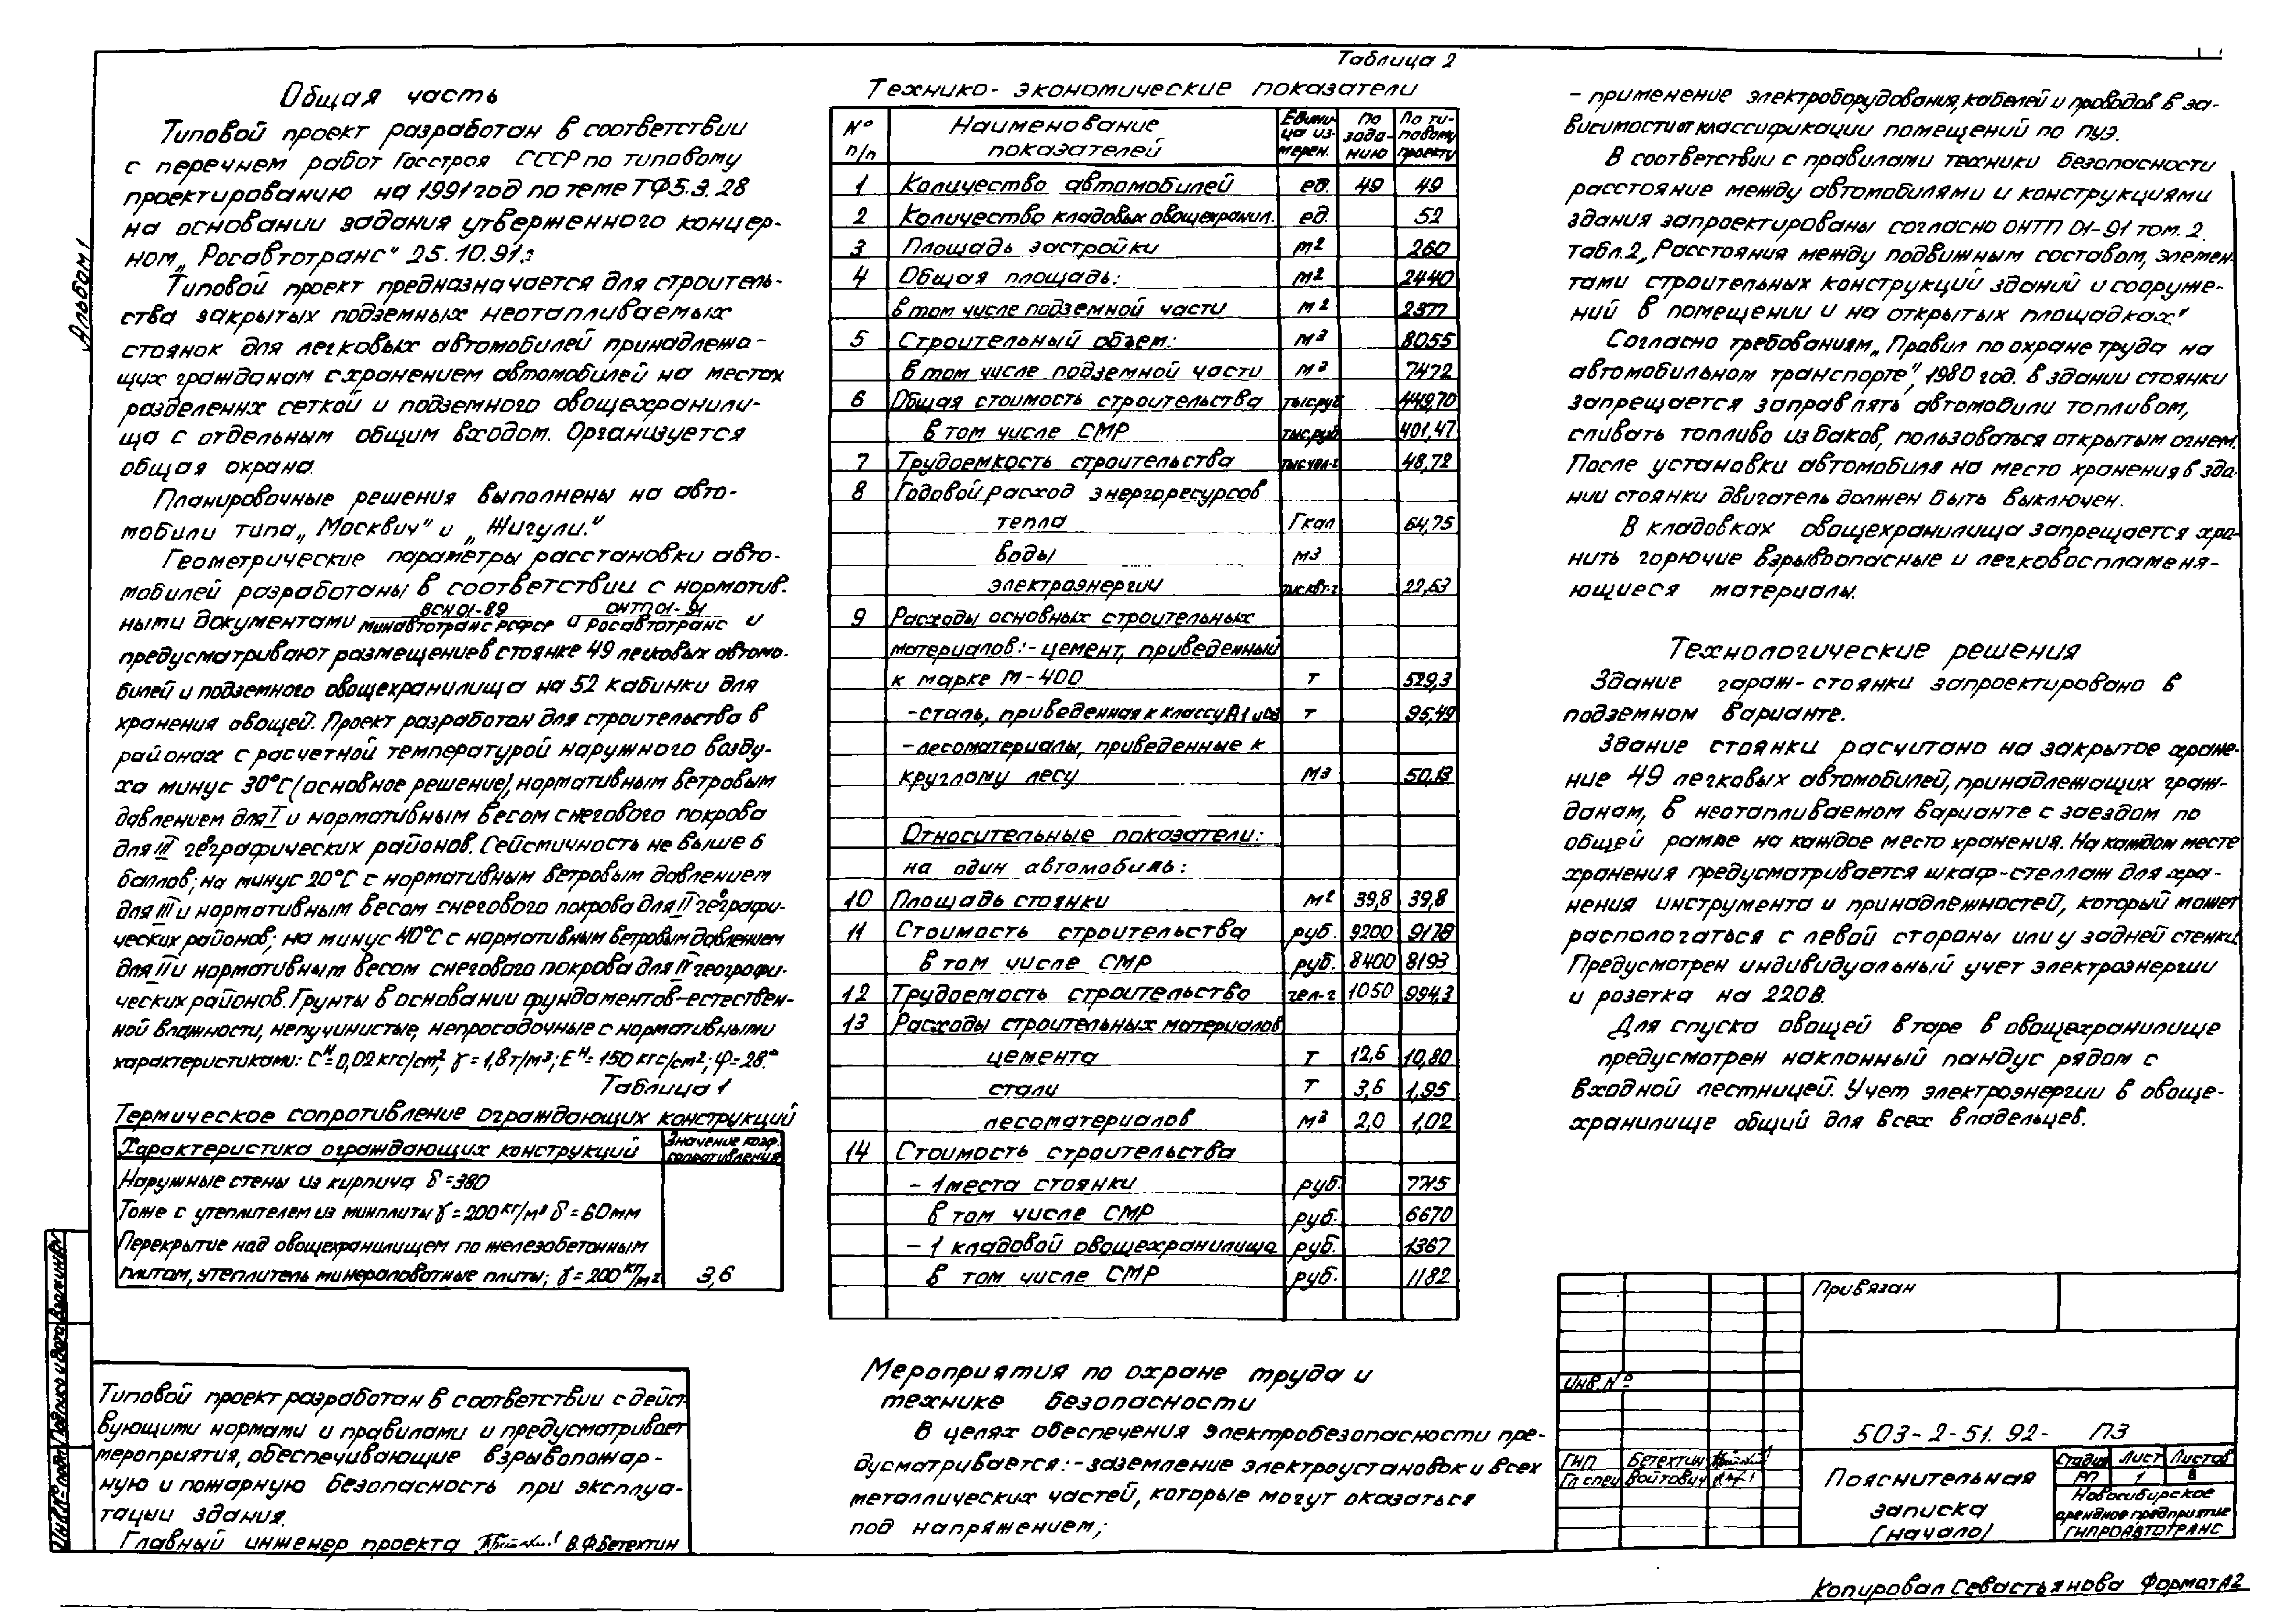 Альбом 1
Общая часть
Типовой проект разработан в соответствии
с перечнем работ Госстроя СССР по типовому
проектированию на 1991 год по теме ТФ5.3.28
на основании задания утверженного концер-
ном „Росавтотранс" 25.10.91г.
Типовой проект предназначается для строитель-
ства закрытых подземных неотапливаемых
стоянок для легковых автомобилей принадлежа-
щих гражданам с хранением автомобилей на местах
разделенных сеткой и подземного овощехранили-
ща с отдельным общим входом. Организуется
общая охрана.
Планировочные решения выполнены на авто-
мобили типа „Москвич" и „Жигули."
Геометрические параметры расстановки авто-
мобилей разработаны в соответствии с норматив.
ными документами ВСН 01-89 / Минавтотранс РСФСР и ОНТП 01-91 / Росавтотранс и
предусматривают размещение в стоянке 49 легковых автомо-
билей и подземного овощехранилища на 52 кабинки для
хранения овощей. Проект разработан для строительства в
районах с расчетной температурой наружного возду-
ха минус 30°С (основное решение), нормативным ветровым
давлением для I и нормативным весом снегового покрова
для III географических районов. Сейсмичность не выше 6
баллов; на минус 20°С с нормативным ветровым давлением
для III и нормативным весом снегового покрова для II геграфи-
ческих районов; на минус 40°С с нормативным ветровым давлением
для II и нормативным весом снегового покрова для IV географи-
ческих районов. Грунты в основании фундаментов-естествен-
ной влажности, непучинистые, непросадочные с нормативными
характеристиками: Cᴴ=0,02 кгс/см², γ=1,8т/м³; Eᴴ=150 кгс/см²; φ=28°
Таблица 1
Термическое сопротивление ограждающих конструкций
Характеристика ограждающих конструкций Значение коэф. сопротивления
Наружные стены из кирпича δ=380
Тоже с утеплителем из минплиты γ=200 кг/м³ δ=60мм
Перекрытие над овощехранилищем по железобетонным
плитам, утеплитель минераловатные плиты; γ=200 кг/м² 3,6
Типовой проект разработан в соответствии с дейст-
вующими нормами и правилами и предусматривает
мероприятия, обеспечивающие взрывопожар-
ную и пожарную безопасность при эксплуа-
тации здания.
Главный инженер проекта В.Ф.Бетехтин
Таблица 2
Технико-экономические показатели
№ п/п Наименование показателей Едини-ца из-мерен. По зада-нию По ти-повому проекту
1 Количество автомобилей ед. 49 49
2 Количество кладовых овощехранил. ед. 52
3 Площадь застройки м² 260
4 Общая площадь: м² 2440
в том числе подземной части м² 2377
5 Строительный объем: м³ 8055
в том числе подземной части м³ 7472
6 Общая стоимость строительства тыс.руб 449,70
в том числе СМР тыс.руб 401,47
7 Трудоемкость строительства тыс.чел-г 48,72
8 Годовой расход энергоресурсов
тепла Гкал 64,75
воды м3
электроэнергии тыс.квт-г 22,63
9 Расходы основных строительных
материалов:- цемент, приведенный
к марке М-400 т 529,3
-сталь, приведенная к классу А1 и С38 т 95,49
-лесоматериалы, приведенные к
круглому лесу м3 50,13
Относительные показатели:
на один автомобиль:
10 Площадь стоянки м² 39,8 39,8
11 Стоимость строительства руб. 9200 9178
в том числе СМР руб. 8400 8193
12 Трудоемость строительство чел-г 1050 994,3
13 Расходы строительных материалов
цемента т 12,6 10,80
стали т 3,6 1,95
лесоматериалов м³ 2,0 1,02
14 Стоимость строительства
- 1 места стоянки руб. 7745
в том числе СМР руб. 6670
- 1 кладовой овощехранилища руб. 1367
в том числе СМР руб. 1182
Мероприятия по охране труда и
технике безопасности
В целях обеспечения электробезопасности пре-
дусматривается:-заземление электроустановок и всех
металлических частей, которые могут оказаться
под напряжением;
- применение электроборудования, кабелей и проводов в за-
висимости от классификации помещений по ПУЭ.
В соответствии с правилами техники безопасности
расстояние между автомобилями и конструкциями
здания запроектированы согласно ОНТП 01-91 том. 2.
табл.2 „Расстояния между подвижным составом, элемен-
тами строительных конструкций зданий и сооруже-
ний в помещении и на открытых площадках"
Согласно требованиям „Правил по охране труда на
автомобильном транспорте", 1980 год. в здании стоянки
запрещается заправлять автомобили топливом,
сливать топливо из баков, пользоваться открытым огнем.
После установки автомобиля на место хранения в зда-
нии стоянки двигатель должен быть выключен.
В кладовках овощехранилища запрещается хра-
нить горючие взрывоопасные и легковоспламеня-
ющиеся материалы.
Технологические решения
Здание гараж-стоянки запроектировано в
подземном варианте.
Здание стоянки расчитано на закрытое хране-
ние 49 легковых автомобилей, принадлежащих граж-
данам, в неотапливаемом варианте с заездом по
общей рампе на каждое место хранения. На каждом месте
хранения предусматривается шкаф-стеллаж для хра-
нения инструмента и принадлежностей, который может
распологаться с левой стороны или у задней стенки.
Предусмотрен индивидуальный учет электроэнергии
и розетка на 220В.
Для спуска овощей в таре в овощехранилище
предусмотрен наклонный пандус рядом с
входной лестницей. Учет электроэнергии в овоще-
хранилище общий для всех владельцев.
Привязан
Инв.№
503-2-51.92- ПЗ
ГИП Бетехтин
Гл.спец Войтович
Пояснительная
записка
(начало)
Стадия Лист Листов
РП 1 8
Новосибирское
арендное предприятие
ГИПРОАВТОТРАНС
Инв.№ подл Подпись и дата Взам.инв.№
Копировал Севастьянова Формат А2